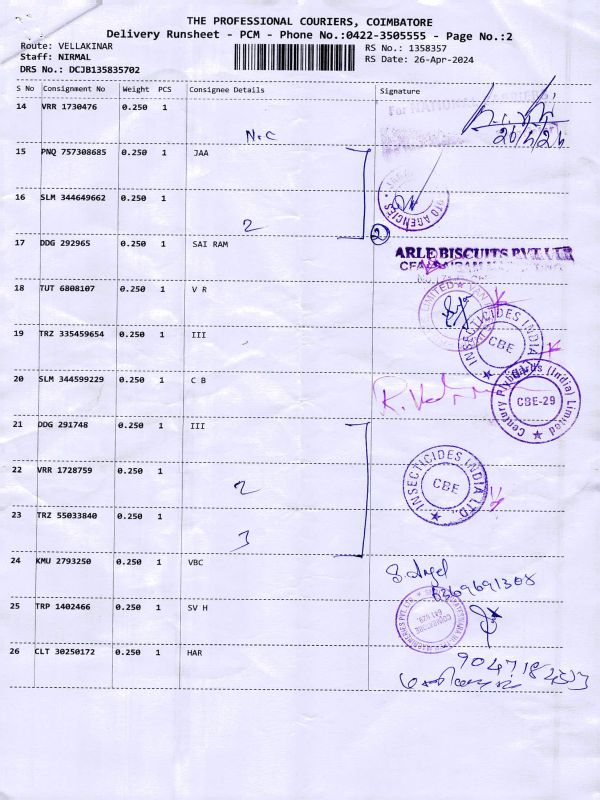 THE PROFESSIONAL COURIERS, COIMBATORE
Delivery Runsheet - PCM - Phone No.:0422-3505555 - Page No.:2
Route: VELLAKINAR RS No.: 1358357
Staff: NIRMAL RS Date: 26-Apr-2024
DRS No.: DCJB135835702
S No Consignment No Weight PCS Consignee Details Signature
14 VRR 1730476 0.250 1
N.C 26/4/24
15 PNQ 757308685 0.250 1 JAA
16 SLM 344649662 0.250 1
2 AGENCIES
2
17 DDG 292965 0.250 1 SAI RAM
ARLE BISCUITS PVT LTD
18 TUT 6808107 0.250 1 V R
INSECTICIDES INDIA
CBE
19 TRZ 335459654 0.250 1 III
20 SLM 344599229 0.250 1 C B
Century Plyboards (India) Limited
CBE-29
21 DDG 291748 0.250 1 III
22 VRR 1728759 0.250 1
2
INSECTICIDES INDIA LTD.
CBE
23 TRZ 55033840 0.250 1
3
24 KMU 2793250 0.250 1 VBC
6369691308
25 TRP 1402466 0.250 1 SV H
COIMBATORE
26 CLT 30250172 0.250 1 HAR